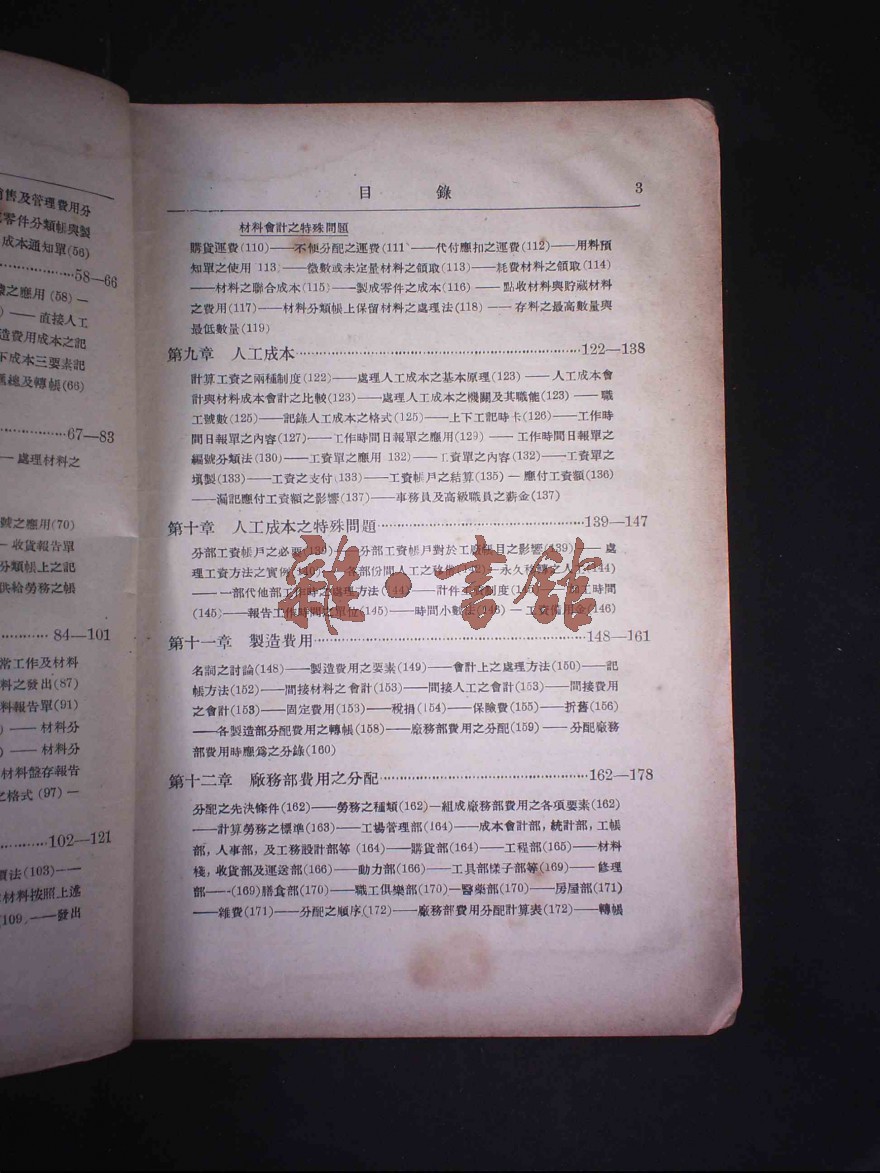 售及管理費用分
零件分類帳與製
成本通知單(56)
58—66
之應用(58)—
——直接人工
造費用成本之記
下成本三要素記
總及轉帳(66)
67—83
—處理材料之
號之應用(70)
—收貨報告單
分類帳上之記
供給勞務之帳
84—101
常工作及材料
料之發出(87)
料報告單(91)
——材料分
——材料分
材料盤存報告
之格式(97)—
102—121
價法(103)——
材料按照上述
(109)——發出
目 錄 3
材料會計之特殊問題
購貨運費(110)——不便分配之運費(111——代付應扣之運費(112)——用料預
知單之使用 113)——微數或未定量材料之領取(113)——耗費材料之領取(114)
——材料之聯合成本(115)——製成零件之成本(116)——點收材料與貯藏材料
之費用(117)——材料分類帳上保留材料之處理法(118)——存料之最高數量與
最低數量(119)
第九章 人工成本……122—138
計算工資之兩種制度(122)——處理人工成本之基本原理(123)——人工成本會
計與材料成本會計之比較(123)——處理人工成本之機關及其職能(123)——職
工號數(125)——記錄人工成本之格式(125)——上下工記時卡(126)——工作時
間日報單之內容(127)——工作時間日報單之應用(129)——工作時間日報單之
編號分類法(130)——工資單之應用 132)——工資單之內容(132)——工資單之
填製(133)——工資之支付(133)——工資帳戶之結算(135)—應付工資額(136)
——漏記應付工資額之影響(137)——事務員及高級職員之薪金(137)
第十章 人工成本之特殊問題……139—147
分部工資帳戶之必要(139)——分部工資帳戶對於工廠帳目之影響(139)——處
理工資方法之實例(140)——各部份間人工之移借(142)—永久移轉之人工(144)
——一部代他部工作時之處理方法(144)——計件工資制度(145)——工時間
(145)——報告工作時間之單位(145)——時間小數法(146)—工資備用金(146)
雜·書館
第十一章 製造費用……148—161
名詞之討論(148)——製造費用之要素(149)——會計上之處理方法(150)——記
帳方法(152)——間接材料之會計(153)——間接人工之會計(153)——間接費用
之會計(153)——固定費用(153)——稅捐(154)——保險費(155)——折舊(156)
——各製造部分配費用之轉帳(158)——廠務部費用之分配(159)——分配廠務
部費用時應爲之分錄(160)
第十二章 廠務部費用之分配……162—178
分配之先決條件(162)——勞務之種類(162)—組成廠務部費用之各項要素(162)
——計算勞務之標準(163)——工場管理部(164)——成本會計部,統計部,工帳
部,人事部,及工務設計部等(164)——購貨部(164)——工程部(165)——材料
棧,收貨部及運送部(166)——動力部(166)——工具部樣子部等(169)——修理
部——(169)膳食部(170)——職工俱樂部(170)—醫藥部(170)——房屋部(171)
——雜費(171)——分配之順序(172)——廠務部費用分配計算表(172)——轉帳